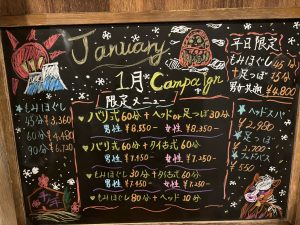 January
1月 Campaign
限定メニュー
♥バリ式60分+ヘッドor足つぼ30分
男性 ¥8,550- 女性 ¥8,350-
♥バリ式60分+タイ古式60分
男性 ¥7,450- 女性 ¥7,250-
♥もみほぐし30分+タイ古式60分
男性 ¥7,450- 女性 ¥7,250-
♥もみほぐし80分+ヘッド10分
もみほぐし
45分 ¥3,360
60分 ¥4,480
90分 ¥6,720
平日限定!
もみほぐし45分
+足つぼ15分
男女共通 ¥4,800
ヘッドスパ
¥2,950
足つぼ
¥2,700
フットバス
¥550